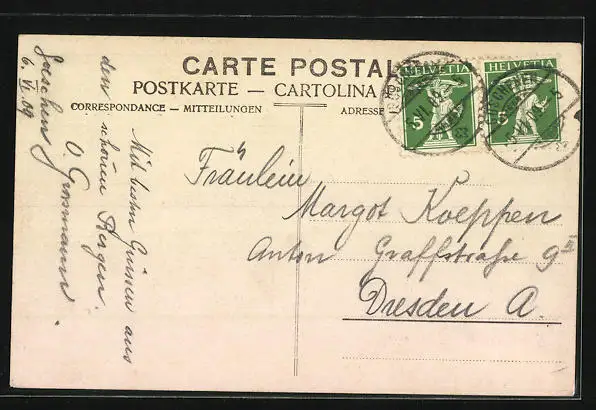 CARTE POSTALE
POSTKARTE — CARTOLINA
CORRESPONDANCE — MITTEILUNGEN
ADRESSE
HELVETIA
5
HELVETIA
5
Mit besten Grüssen aus
dem schönen Regen.
O. Grosmann.
Goeschenen
6. VI. 09
Fräulein
Margot Koeppen
Anton Graffstraße 9 III
Dresden A.